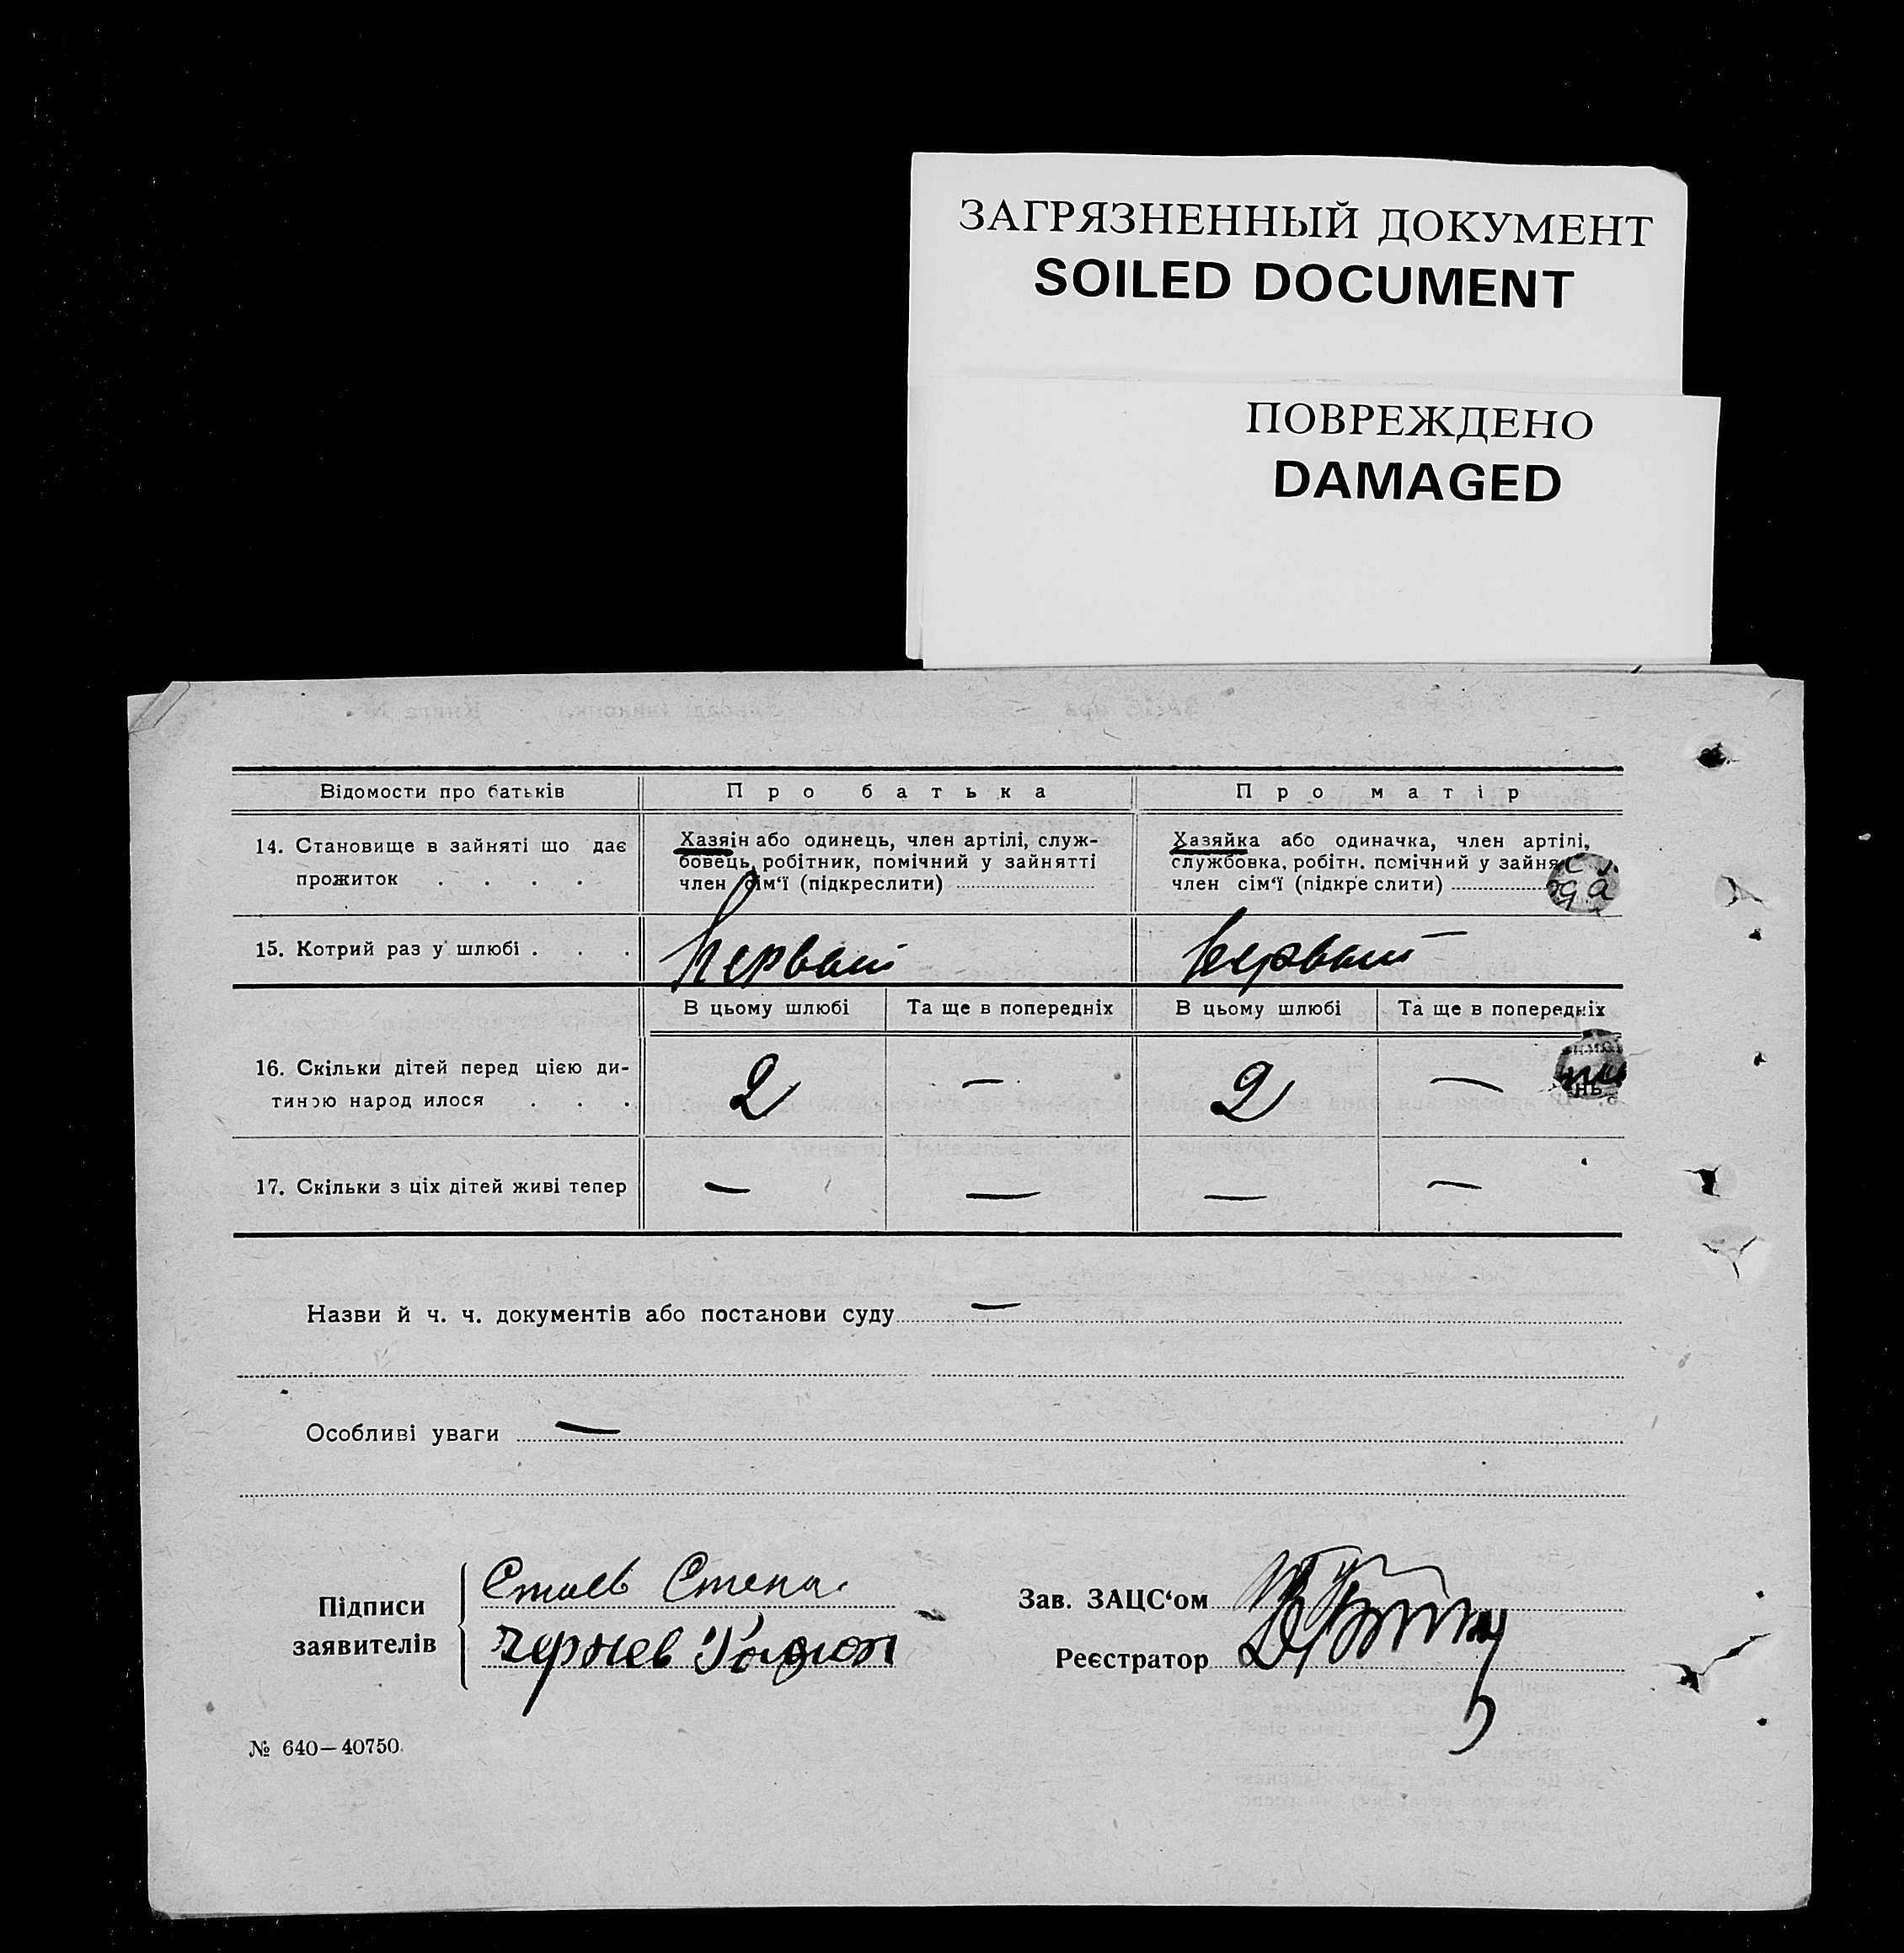 ЗАГРЯЗНЕННЫЙ ДОКУМЕНТ
SOILED DOCUMENT
ПОВРЕЖДЕНО
DAMAGED
Відомости про батьків Про батька Про матір
14. Становище в зайняті що дає
прожиток . . . .
Хазяін або одинець, член артілі, служ-
бовець, робітник, помічний у зайнятті
член сім'ї (підкреслити)
Хазяйка або одиначка, член артілі,
службовка, робітн. помічний у зайня
член сім'ї (підкреслити)
15. Котрий раз у шлюбі . . . Первый Первый
В цьому шлюбі Та ще в попередніх В цьому шлюбі Та ще в попередніх
16. Скільки дітей перед цією ди-
тиною народилося . . . 2 — 2 —
17. Скільки з ціх дітей живі тепер — — — —
Назви й ч. ч. документів або постанови суду —
Особливі уваги —
Підписи
заявителів
Степа
Чернев
Зав. ЗАЦС'ом
Реєстратор
№ 640—40750